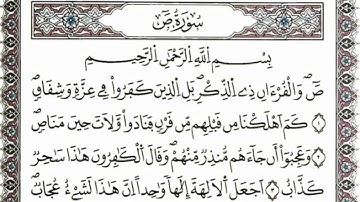 سُورَةُ صٓ
بِسْمِ ٱللَّهِ ٱلرَّحْمَٰنِ ٱلرَّحِيمِ
صٓ وَٱلْقُرْءَانِ ذِے ٱلذِّكْرِ بَلِ ٱلَّذِينَ كَفَرُوا۟ فِے عِزَّةٍ وَشِقَاقٍ
١ كَمْ أَهْلَكْنَا مِن قَبْلِهِم مِّن قَرْنٍ فَنَادَوا۟ وَّلَاتَ حِينَ مَنَاصٍ
٢ وَعَجِبُوٓا۟ أَن جَآءَهُم مُّنذِرٌ مِّنْهُمْ وَقَالَ ٱلْكَٰفِرُونَ هَٰذَا سَٰحِرٌ
كَذَّابٌ ٣ أَجَعَلَ ٱلْأٓلِهَةَ إِلَٰهًا وَٰحِدًا إِنَّ هَٰذَا لَشَےْءٌ عُجَابٌ